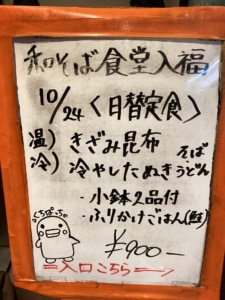 和そば食堂入福
10/24〈日替定食〉
温）きざみ昆布
冷）冷やしたぬき
そば
うどん
・小鉢2品付
・ふりかけごはん(鮭)
¥900-
⇐入口こちら⇒